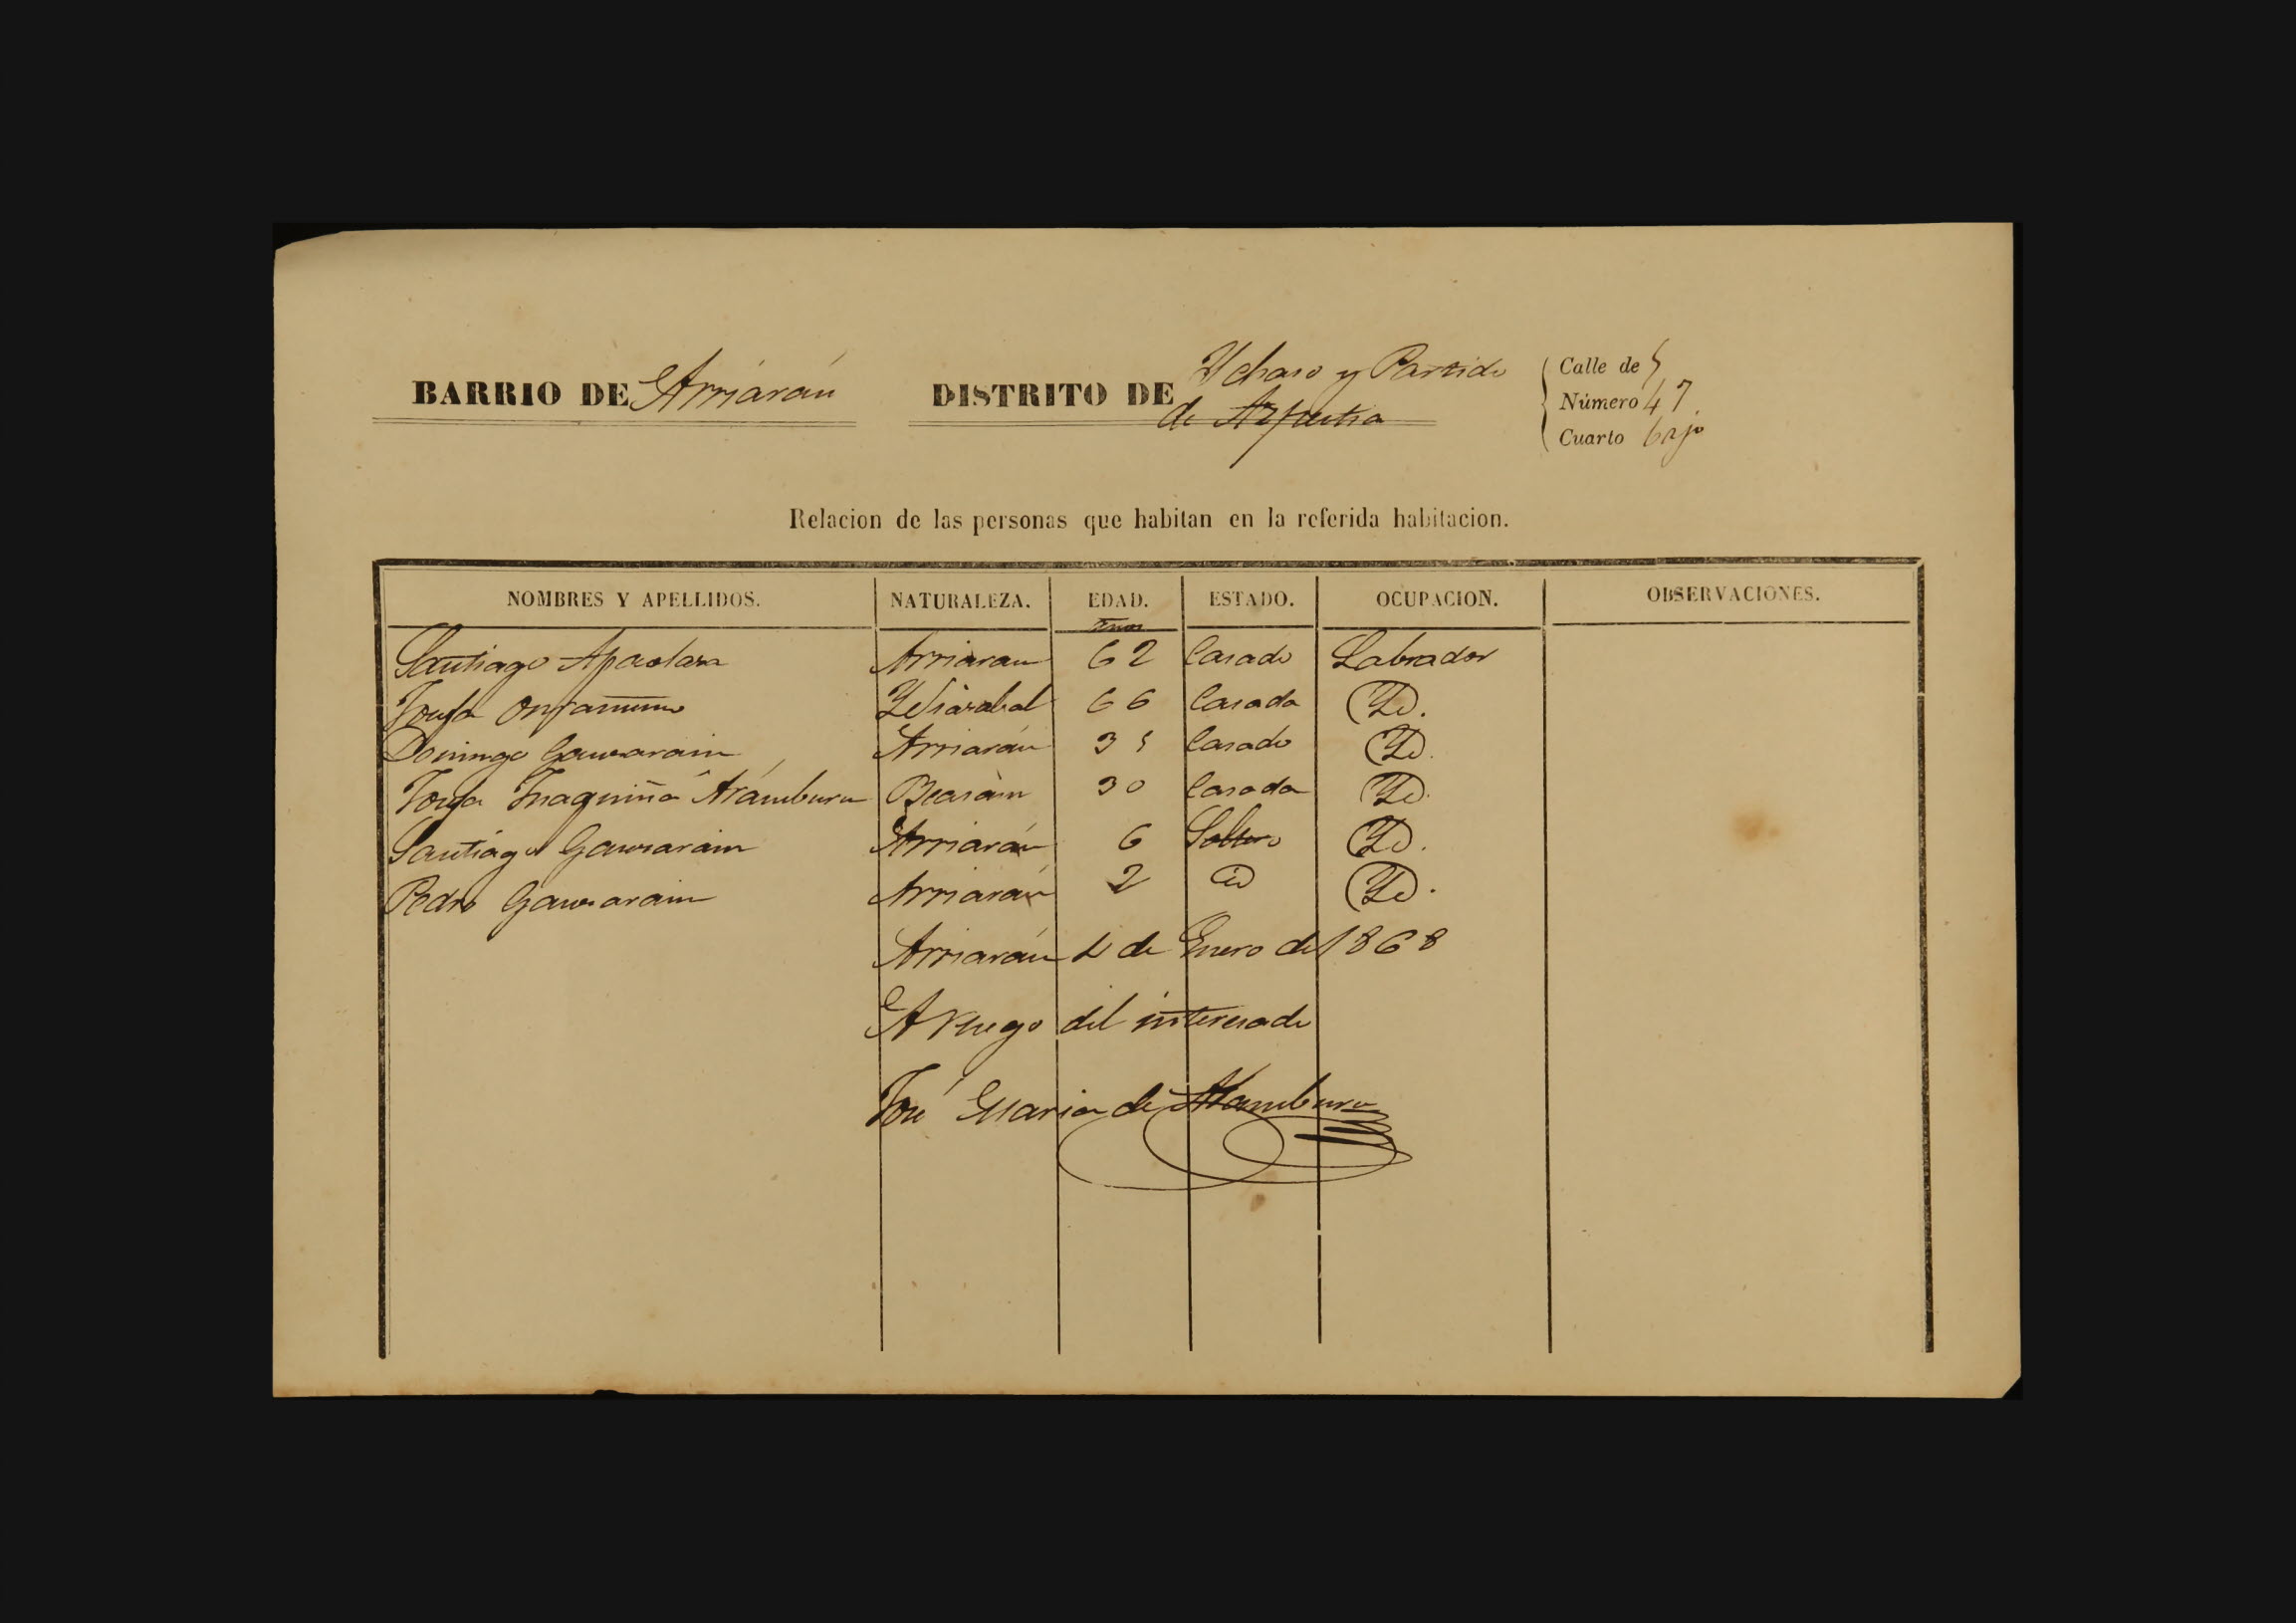 BARRIO DE Arriarán DISTRITO DE Ychaso y Partido
de Azpeitia
Calle de
Número 47.
Cuarto bajo
Relacion de las personas que habitan en la referida habitacion.
NOMBRES Y APELLIDOS. NATURALEZA. EDAD. ESTADO. OCUPACION. OBSERVACIONES.
Años
Santiago Apaolaza Arriaran 62 Casado Labrador
Josefa 66 Casada Yd.
Domingo Arriarán 35 Casado Yd.
Josefa Ynaquina Aramburu Beasain 30 Casada Yd.
Santiago Arriarán 6 Soltero Yd.
Pedro Arriarán 2 id Yd.
Arriarán 2 de Enero de 1868
A ruego del interesado
José Maria de Aramburu